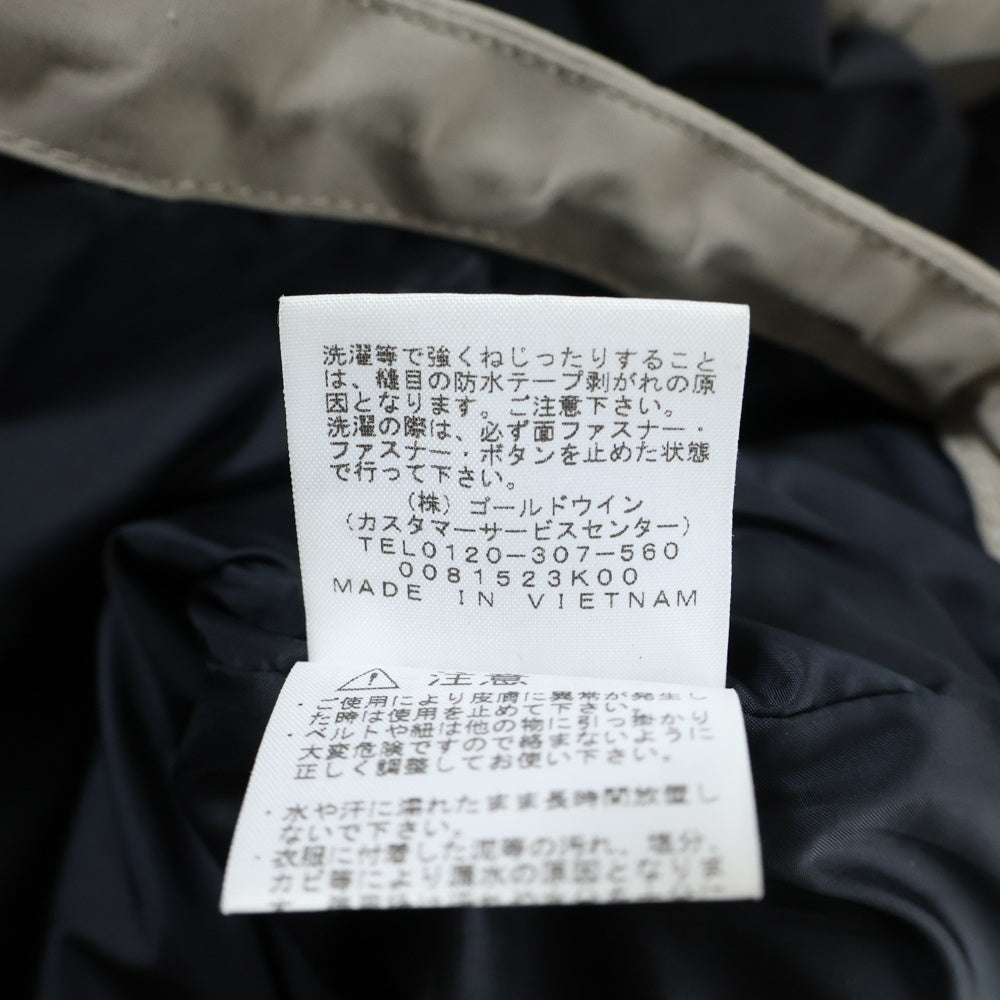 洗濯等で強くねじったりすること
は、縫目の防水テープ剥がれの原
因となります。ご注意下さい。
洗濯の際は、必ず面ファスナー・
ファスナー・ボタンを止めた状態
で行って下さい。
(株)ゴールドウイン
(カスタマーサービスセンター)
TEL0120-307-560
0081523K00
MADE IN VIETNAM
注意
・ご使用により皮膚に異常が発生し
た時は使用を止めて下さい。
・ベルトや紐は他の物に引っ掛かり
大変危険ですので絡まないように
正しく調整してお使い下さい。
・水や汗に濡れたまま長時間放置し
ないで下さい。
・衣服に付着した泥等の汚れ、塩分、
カビ等により漏水の原因となりま